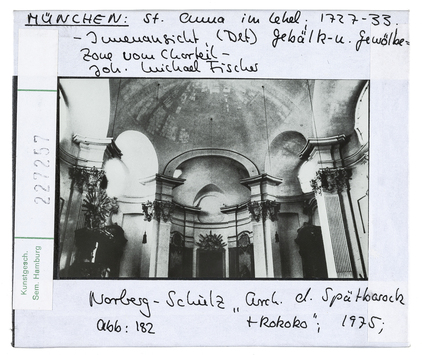 MÜNCHEN: St. Anna im Lehel; 1727-33.
- Innenansicht, (Det) Gebälk- u. Gewölbe=
Zone vom Chorteil -
Joh. Michael Fischer
227257
Kunstgesch.
Sem. Hamburg
Norberg-Schulz „Arch. d. Spätbarock
Abb: 182 + Rokoko"; 1975;